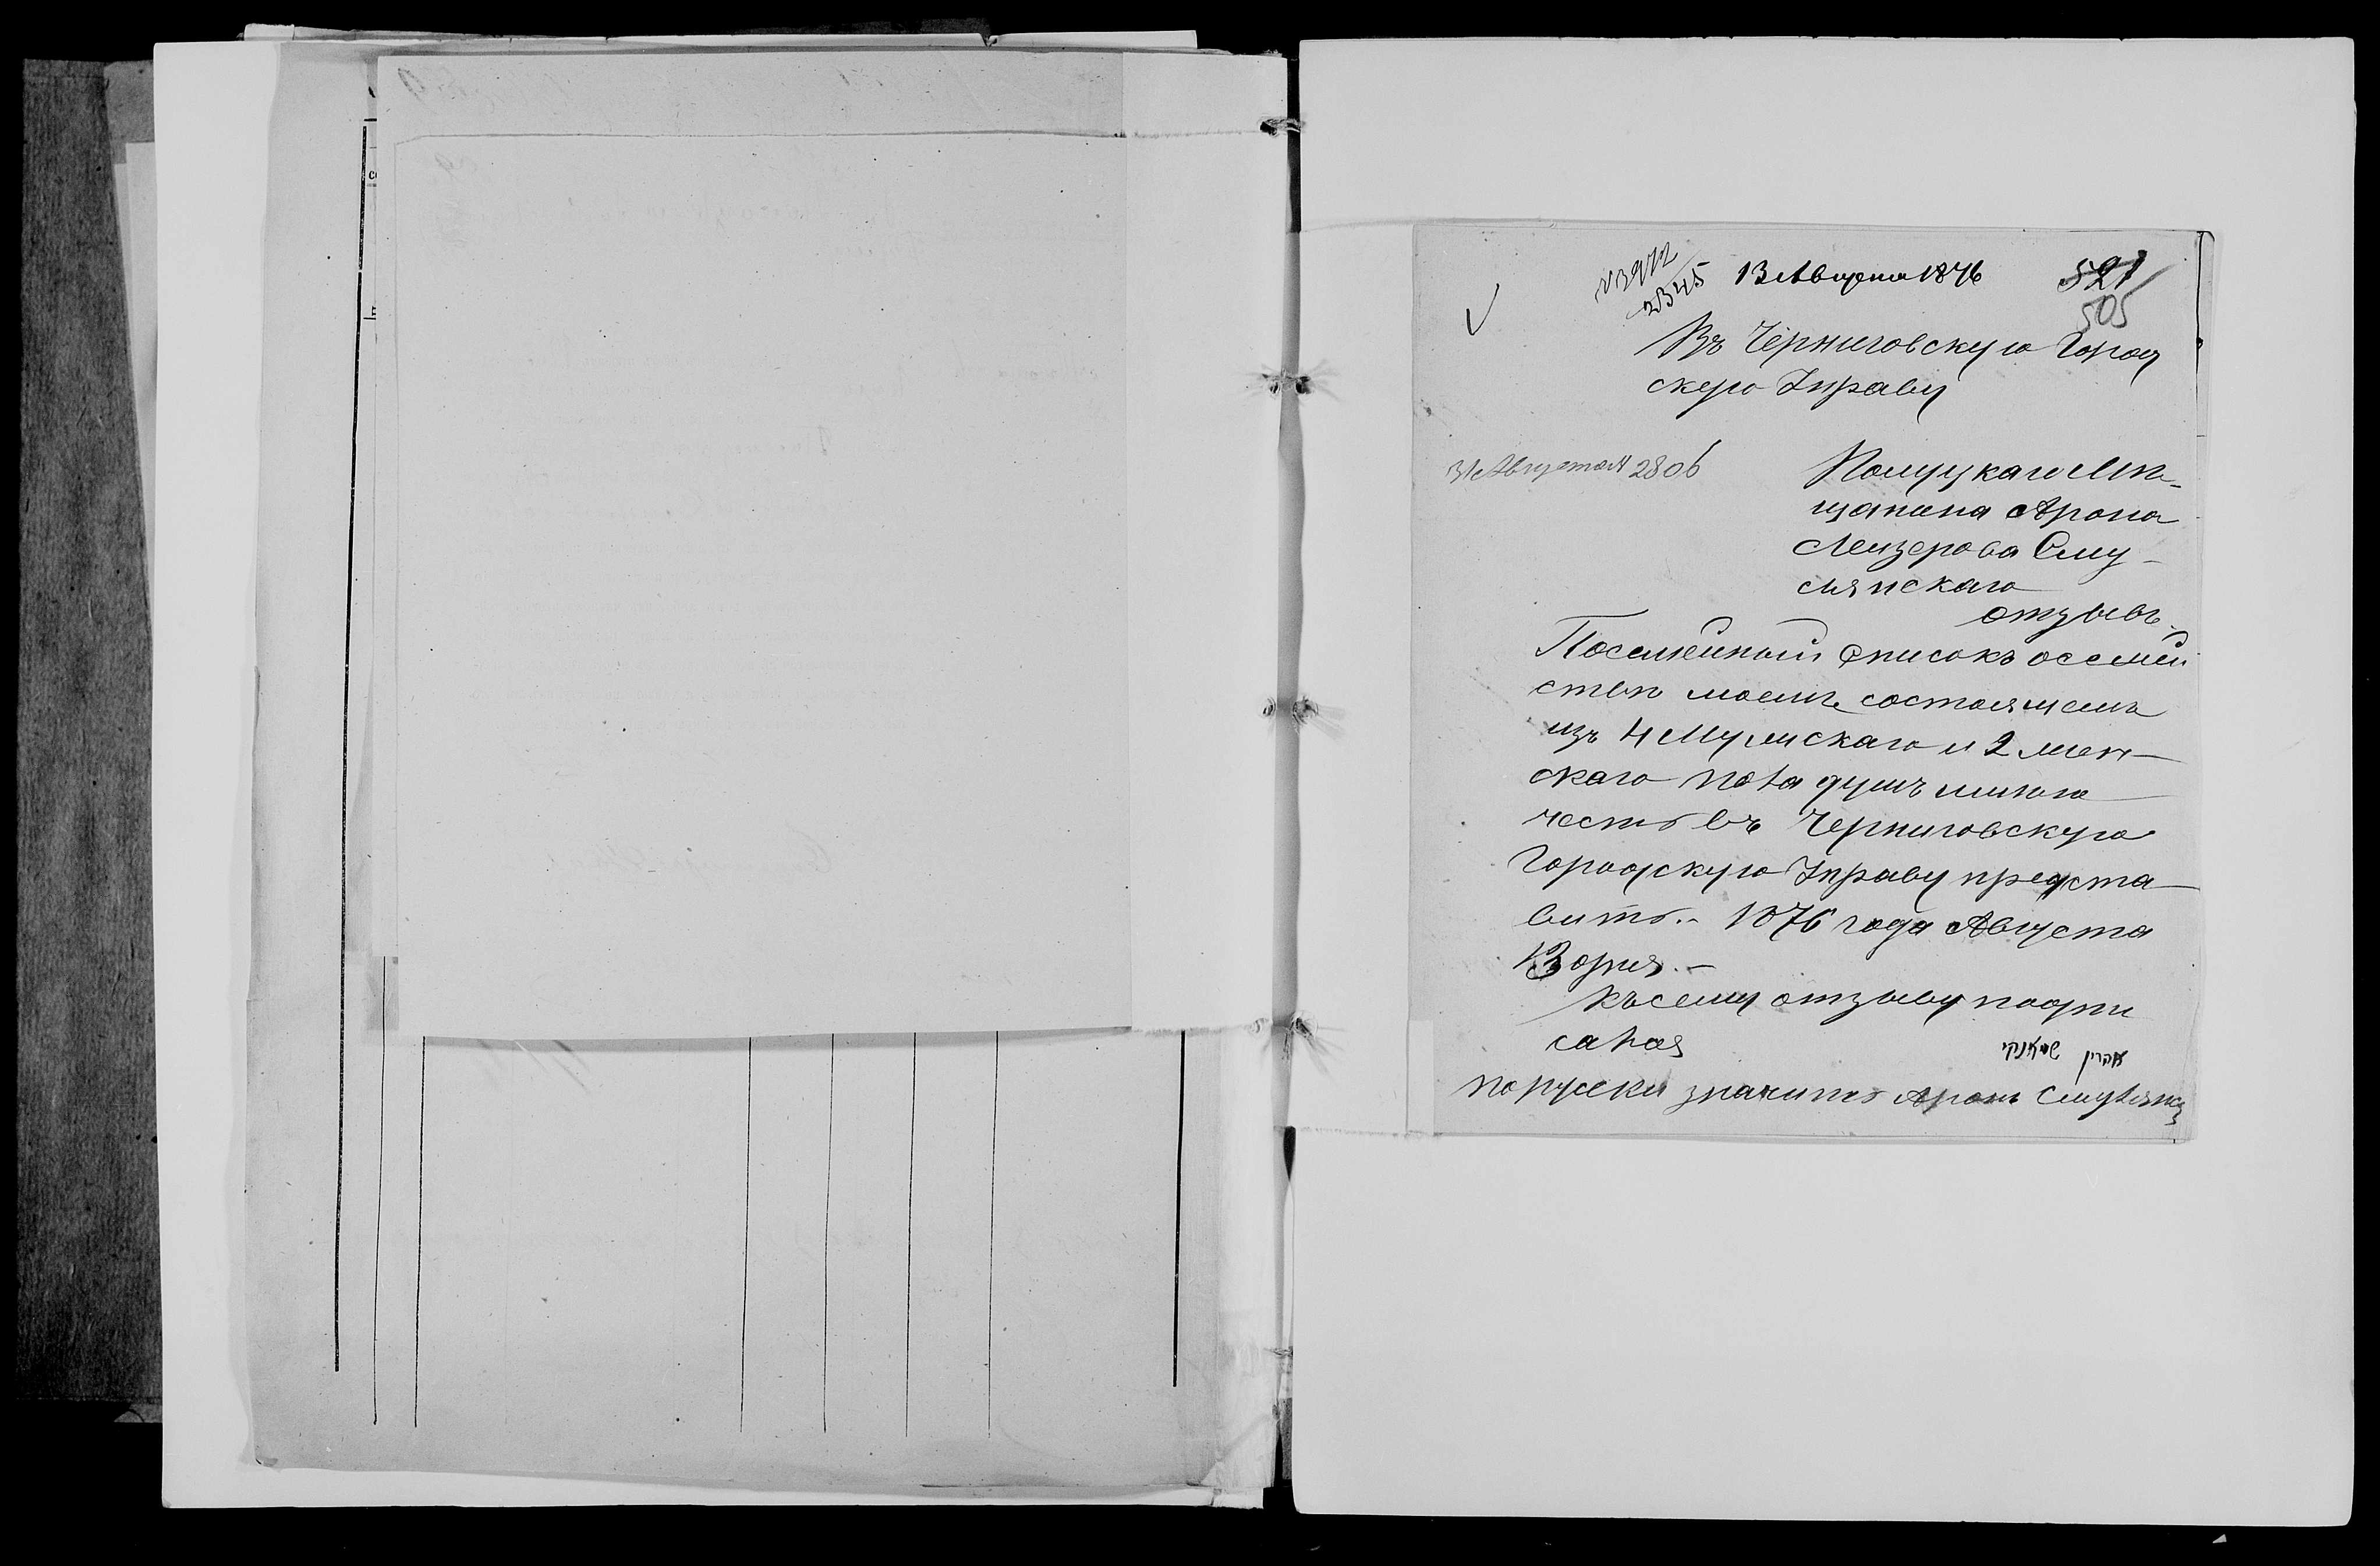 13 Августа 1876
521
505
2345
Въ Черниговскую Город
скую Управу
31 Августа № 2806
Мѣ-
щанина Арона
Лейзерова Слу-
отзывъ.
Посемейный Список о семей
ствѣ моемъ состоящемъ
изъ 4 Мужскаго и 2 жен-
скаго пола душъ имѣю
честь въ Черниговскую
Городскую Управу предста-
вить.- 1876 года Августа
13 дня.-
Къ сему отзыву подпи
сался
אהרין
по руски значитъ Аронъ